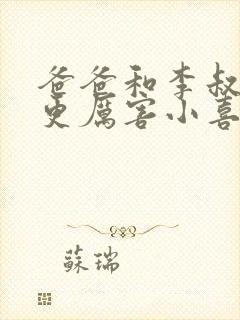 爸爸和李叔
更厲害小喜
蘇瑞